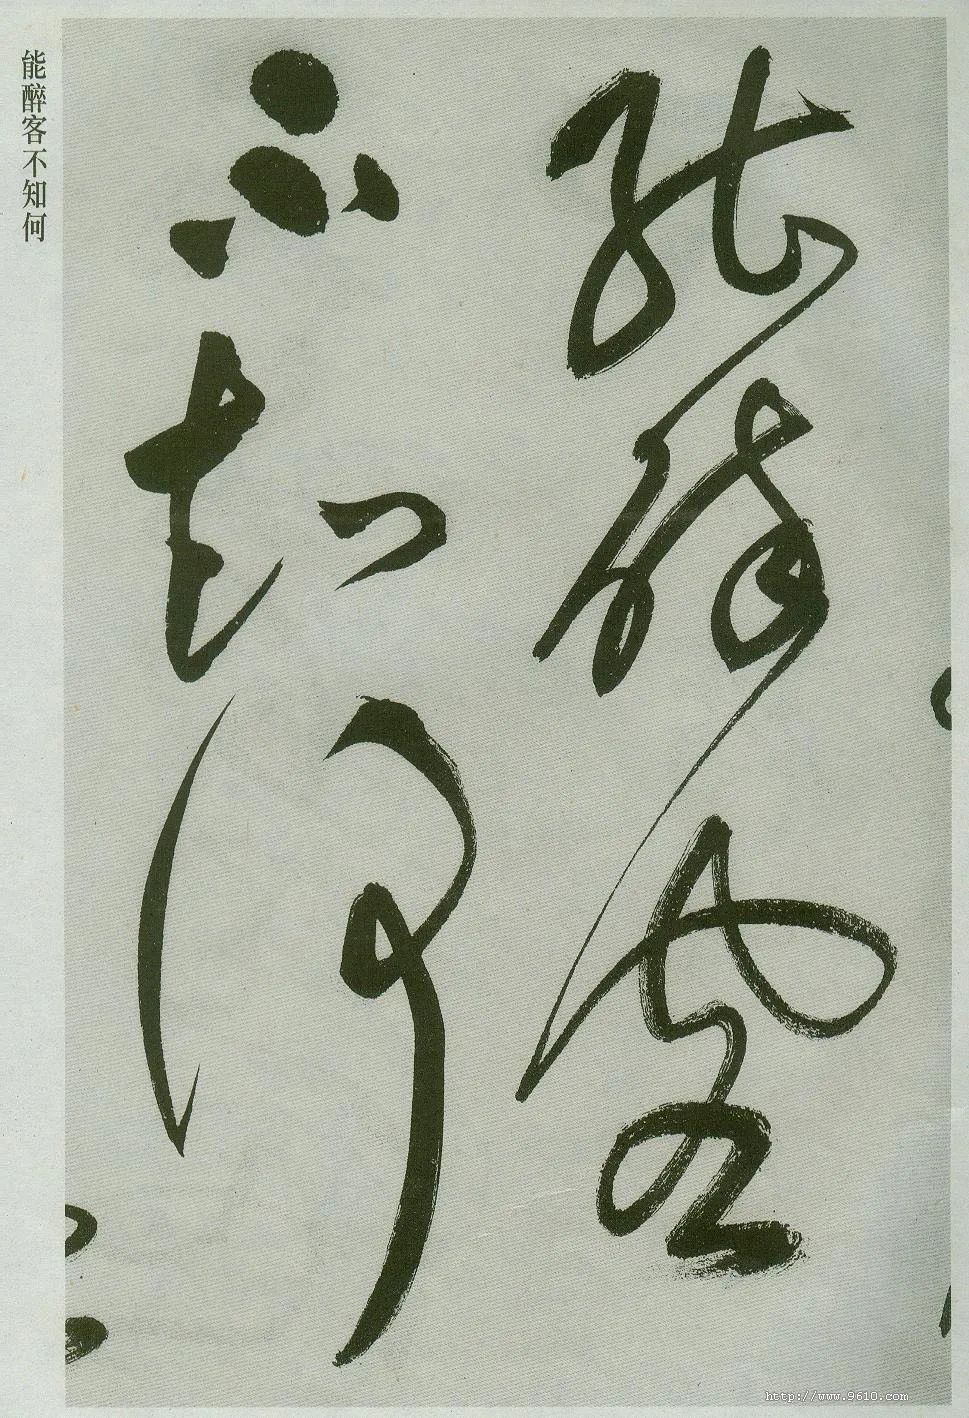 能醉客
不知何
能醉客不知何
http://www.9610.com